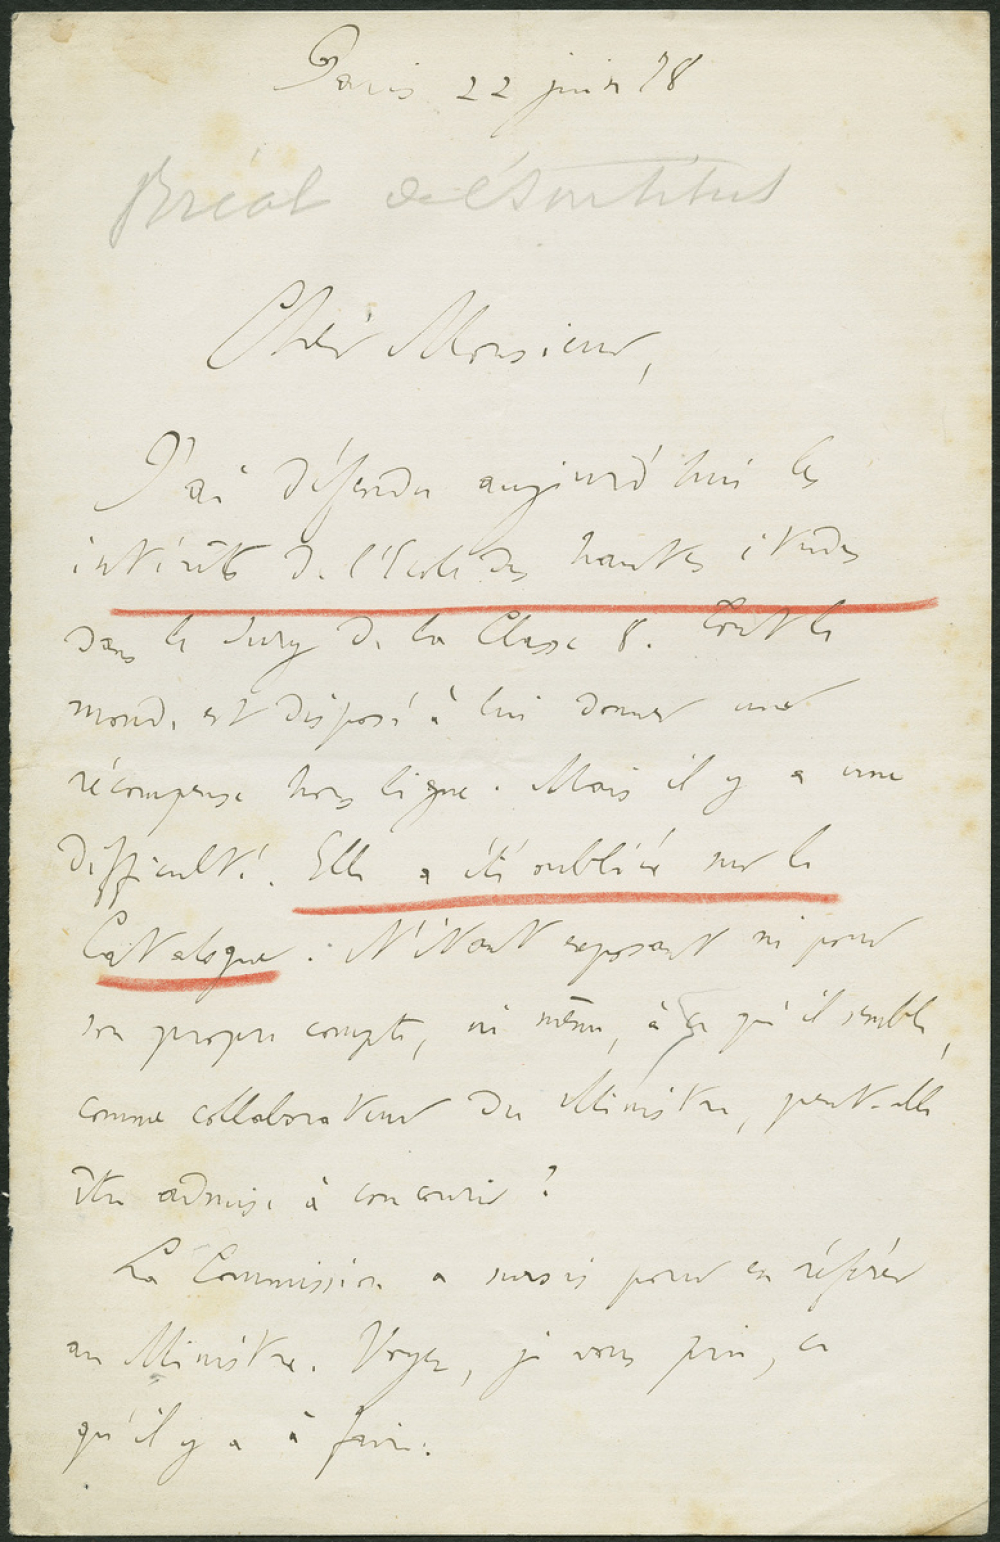 Paris 22 juin 78
Bréal de l'Institut
Cher Monsieur,
J'ai défendu aujourd'hui les
intérêts de l'École des hautes études
dans le Jury de la Classe 8. Tout le
monde est disposé à lui donner une
récompense hors ligne. Mais il y a une
difficulté. Elle a été oubliée sur le
Catalogue. N'étant exposant ni pour
son propre compte, ni même, à ce qu'il semble,
comme collaborateur du Ministre, peut-elle
être admise à concourir ?
La Commission a sursis pour en référer
au Ministre. Voyez, je vous prie, ce
qu'il y a à faire.